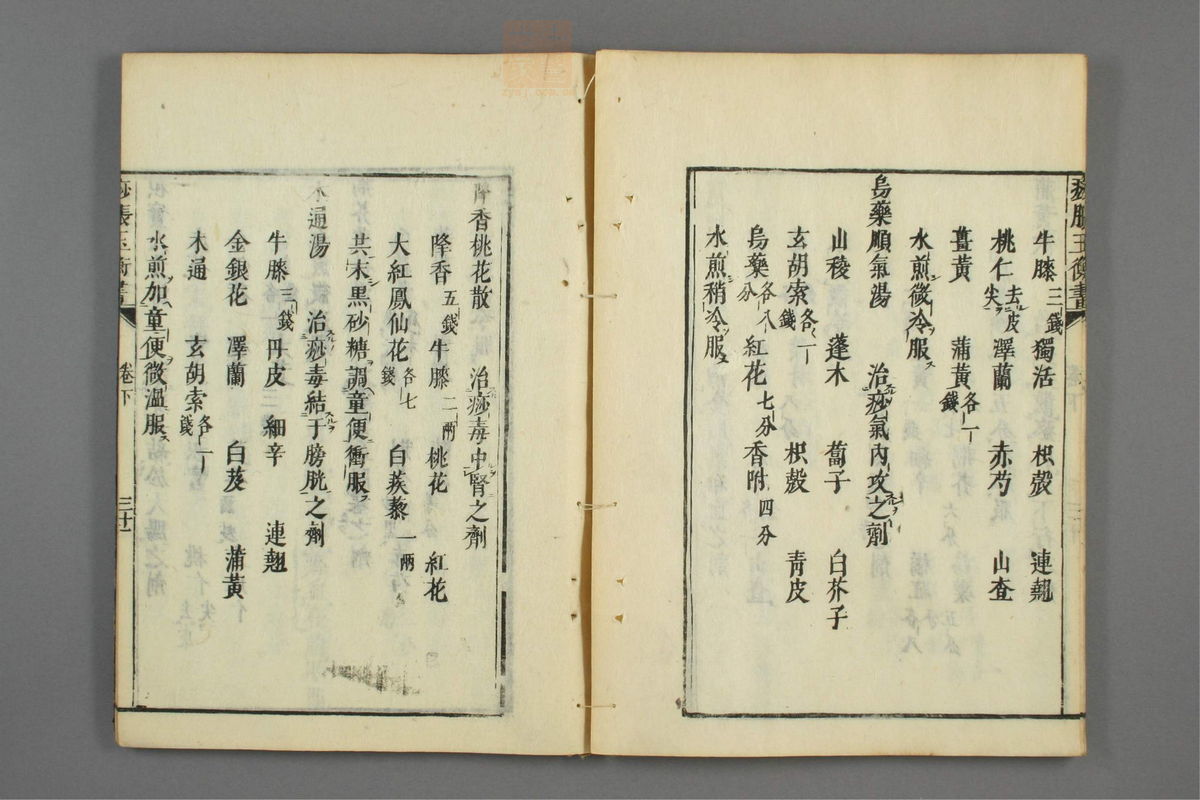 痧脹玉衡書
牛膝三錢 獨活 枳殼 連翹
桃仁去皮尖 澤蘭 赤芍 山查
薑黃 蒲黃各一錢
水煎微冷服
烏藥順氣湯 治痧氣內攻之劑
山稜 蓬木 蔔子 白芥子
玄胡索各一錢 枳殼 青皮
烏藥各八分 紅花七分 香附四分
水煎稍冷服
降香桃花散 治痧毒中腎之劑
降香五錢 牛膝二兩 桃花 紅花
大紅鳳仙花各七錢 白蒺藜一兩
共末黑砂糖調童便衝服
木通湯 治痧毒結于膀胱之劑
牛膝三錢 丹皮 細辛 連翹
金銀花 澤蘭 白芨 蒲黃
木通 玄胡索各一錢
水煎加童便微溫服
痧脹玉衡書 卷下 三十
zysj.com.cn